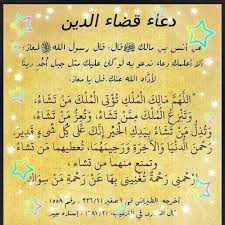 دعاء قضاء الدين
عن أنس بن مالك قال: قال رسول الله ﷺ لمعاذ:
ألا أعلمك دعاء تدعو به لو كان عليك مثل جبل أحد ديناً
لأدَّاه الله عنك قل يا معاذ:
"اللَّهُمَّ مَالِكَ الْمُلْكِ تُؤْتِي الْمُلْكَ مَنْ تَشَاءُ،
وَتَنْزِعُ الْمُلْكَ مِمَّنْ تَشَاءُ، وَتُعِزُّ مَنْ تَشَاءُ،
وَتُذِلُّ مَنْ تَشَاءُ بِيَدِكَ الْخَيْرُ إِنَّكَ عَلَى كُلِّ شَيْءٍ قَدِيرٌ
رَحْمَنَ الدُّنْيَا وَالْآخِرَةِ وَرَحِيمَهُمَا، تُعْطِيهِمَا مَنْ تَشَاءُ
وتمنع منهما من تشاء،
ارْحَمْنِي رَحْمَةً تُغْنِينِي بِهَا عَنْ رَحْمَةِ مَنْ سِوَاكَ
أخرجه الطبراني في الصغير (٣٣٦/١، رقم ٥٥٨)،
في الترغيب (٣٨١/٢): إسناده جيد